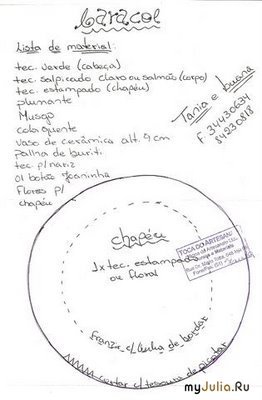 caracol
Lista de material:
tec. verde (cabeça)
tec. salpicado claro ou salmão (corpo)
tec. estampado (chapéu)
plumante
Musgo
cola quente
vaso de cerâmica alt. 9 cm
palha de buriti
tec p/ nariz
01 botão Joaninha
Flores p/
chapéu
Tania e Luana
F: 34430634
84230818
chapéu
1x tec. estampado
ou floral
TOCA DO ARTESANATO
franzir c/ linha de bordar
cortar c/ tesoura de picotar
myJulia.Ru